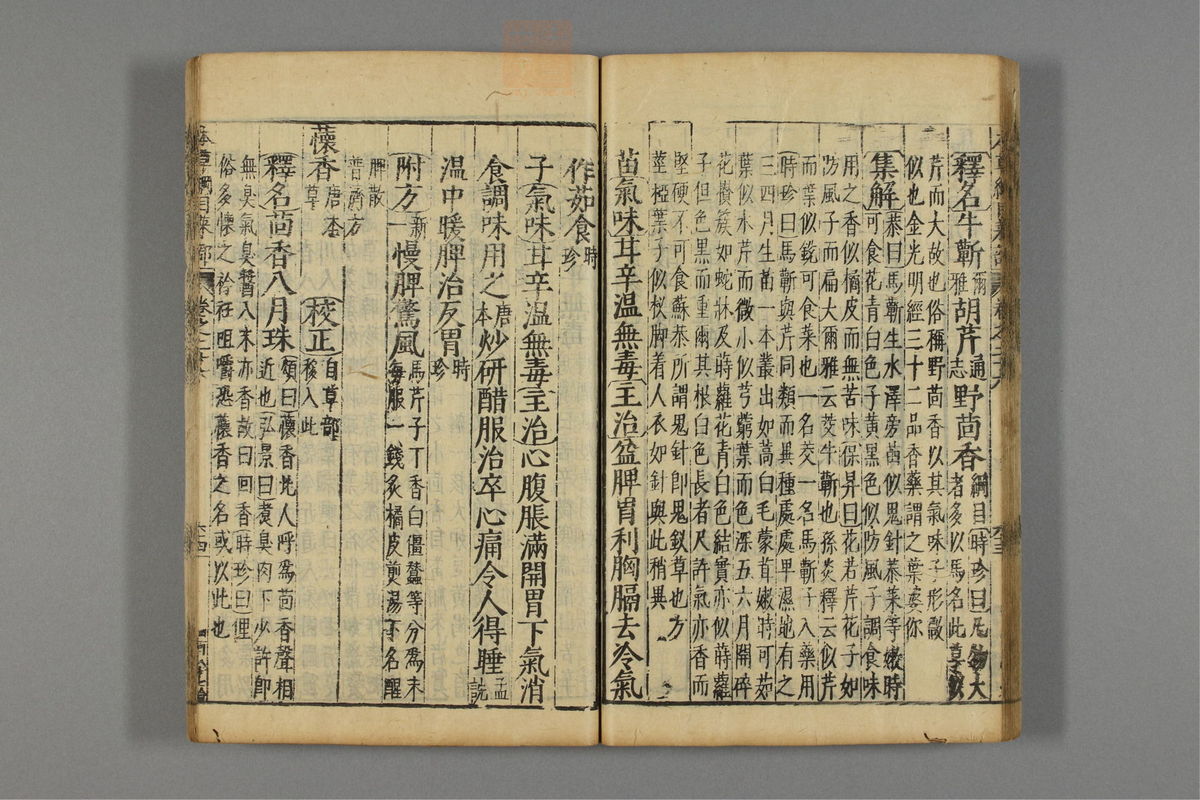 釋名牛蘄爾雅胡芹通志野茴香綱目時珍曰凡物大者多以馬名此草似
芹而大故也俗稱野茴香以其氣味子形微
似也金光明經三十二品香藥謂之葉婆你
集解恭曰馬蘄生水澤旁苗似鬼針菾菜等嫩時
可食花青白色子黃黑色似防風子調食味
用之香似橘皮而無苦味保昇曰花若芹花子如
防風子而扁大爾雅云茭牛蘄也孫炎釋云似芹
而葉似銳可食菜也一名茭一名馬蘄子入藥用
時珍曰馬蘄與芹同類而異種處處卑濕地有之
三四月生苗一本叢出如蒿白毛蒙茸嫩時可茹
葉似水芹而微小似芎藭葉而色深五六月開碎
花攢簇如蛇牀及蒔蘿花青白色結實亦似蒔蘿
子但色黑而重爾其根白色長者尺許氣亦香而
堅硬不可食蘇恭所謂鬼針即鬼釵草也方
莖椏葉子似杈脚着人衣如針與此稍異
苗氣味甘辛温無毒主治益脾胃利胸膈去冷氣
作茹食時珍
子氣味甘辛温無毒主治心腹脹滿開胃下氣消
食調味用之唐本炒研醋服治卒心痛令人得睡孟詵
温中暖脾治反胃時珍
附方新一慢脾驚風馬芹子丁香白僵蠶等分爲末
每服一錢炙橘皮煎湯下名醒
脾散
普濟方
蘹香唐本草校正自草部移入此
釋名茴香八月珠頌曰蘹香北人呼爲茴香聲相
近也弘景曰煮臭肉下少許即
無臭氣臭醬入末亦香故曰回香時珍曰俚
俗多懷之衿衽咀嚼恐蘹香之名或以此也
本草綱目菜部 卷之二十六